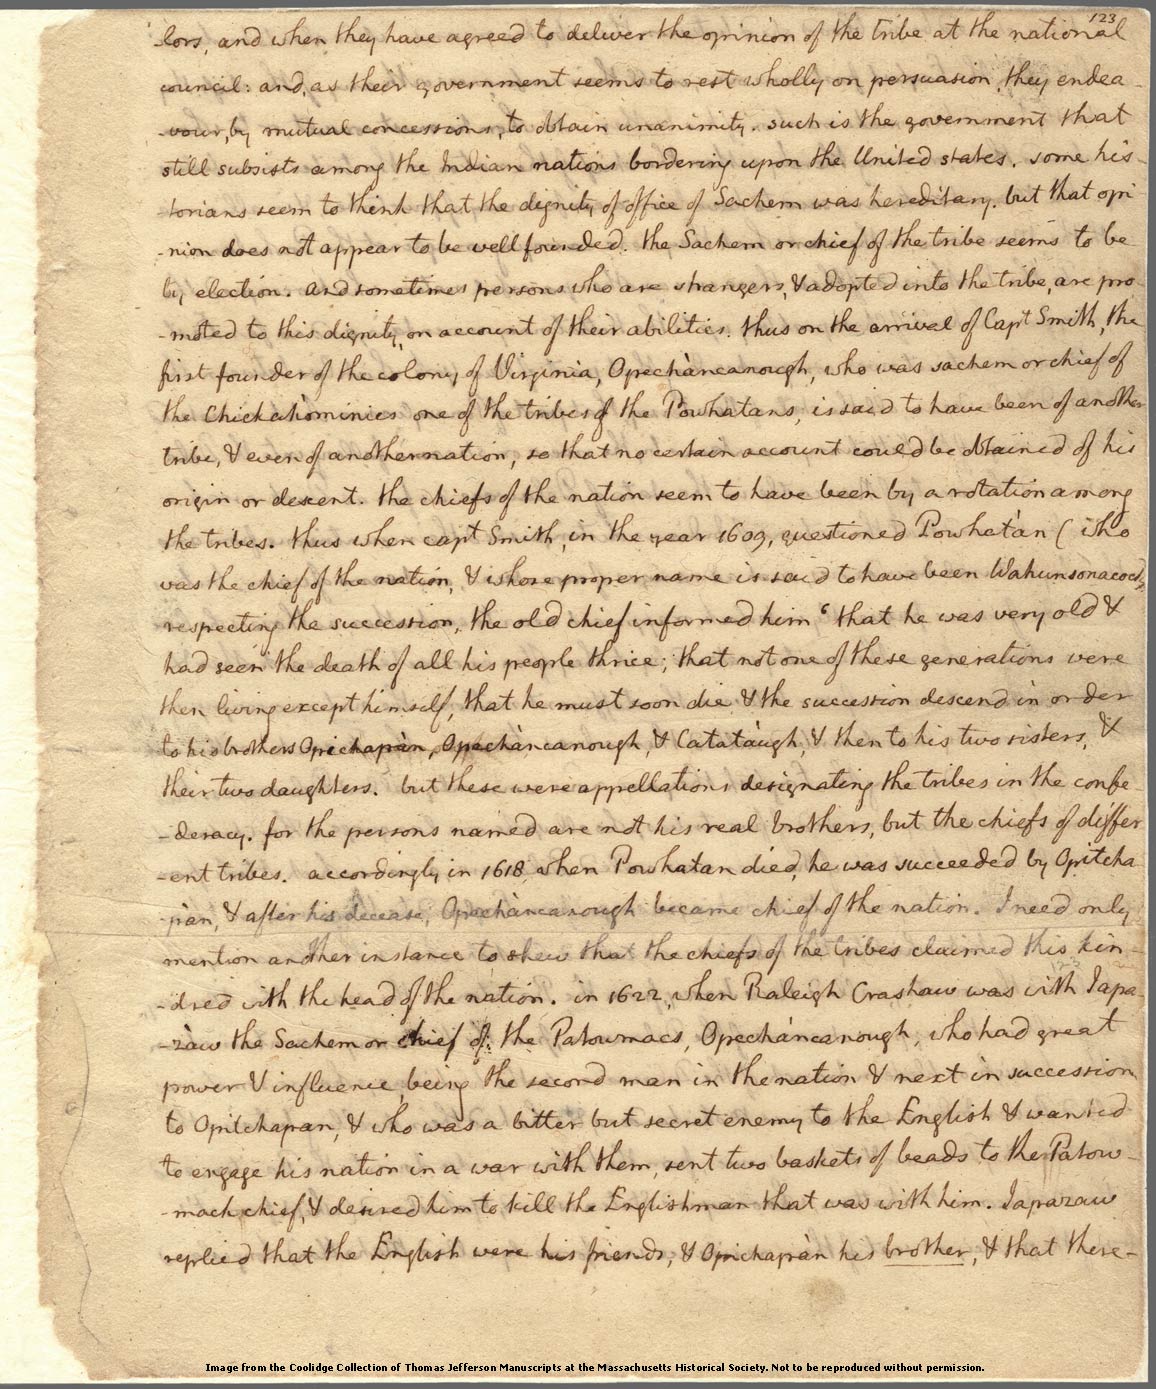 123
lors, and when they have agreed to deliver the opinion of the tribe at the national
council: and, as their government seems to rest wholly on persuasion, they endea-
-vour, by mutual concessions, to obtain unanimity. such is the government that
still subsists among the Indian nations bordering upon the United states. some his-
-torians seem to think that the dignity of office of Sachem was hereditary. but that opi-
-nion does not appear to be well founded. the Sachem or chief of the tribe seems to be
by election. and sometimes persons who are strangers, & adopted into the tribe, are pro-
-moted to this dignity, on account of their abilities. thus on the arrival of Capt Smith, the
first founder of the colony of Virginia, Opechàncanough, who was sachem or chief of
the Chickahominies one of the tribes of the Powhatans, is said to have been of another
tribe, & even of another nation, so that no certain account could be obtained of his
origin or descent. the chiefs of the nation seem to have been by a rotation among
the tribes. thus when capt Smith, in the year 1609, questioned Powhatàn (who
was the chief of the nation, & whose proper name is said to have been Wahunsonacock)
respecting the succession, the old chief informed him 'that he was very old &
had seen the death of all his people thrice; that not one of these generations were
then living except himself, that he must soon die & the succession descend in order
to his brothers Opichapàn, Opechàncanough, & Catatàugh, & then to his two sisters, &
their two daughters. but these were appellations designating the tribes in the confe-
-deracy. for the persons named are not his real brothers, but the chiefs of differ
-ent tribes. accordingly in 1618, when Powhatan died, he was succeeded by Opitcha
-pan, & after his decease, Opechàncanough became chief of the nation. I need only
mention another instance to shew that the chiefs of the tribes claimed this kin-
-dred with the head of the nation. in 1622, when Raleigh Crashaw was with Japa-
-zàw the Sachem or chief of the Patowmacs, Opechàncanough, who had great
power & influence, being the second man in the nation & next in succession
to Opitchapan, & who was a bitter but secret enemy to the English & wanted
to engage his nation in a war with them, sent two baskets of beads to the Patow-
-mack chief, & desired him to kill the Englishman that was with him. Japazaw
replied that the English were his friends, & Opichapàn his brother, & that there-
Image from the Coolidge Collection of Thomas Jefferson Manuscripts at the Massachusetts Historical Society. Not to be reproduced without permission.